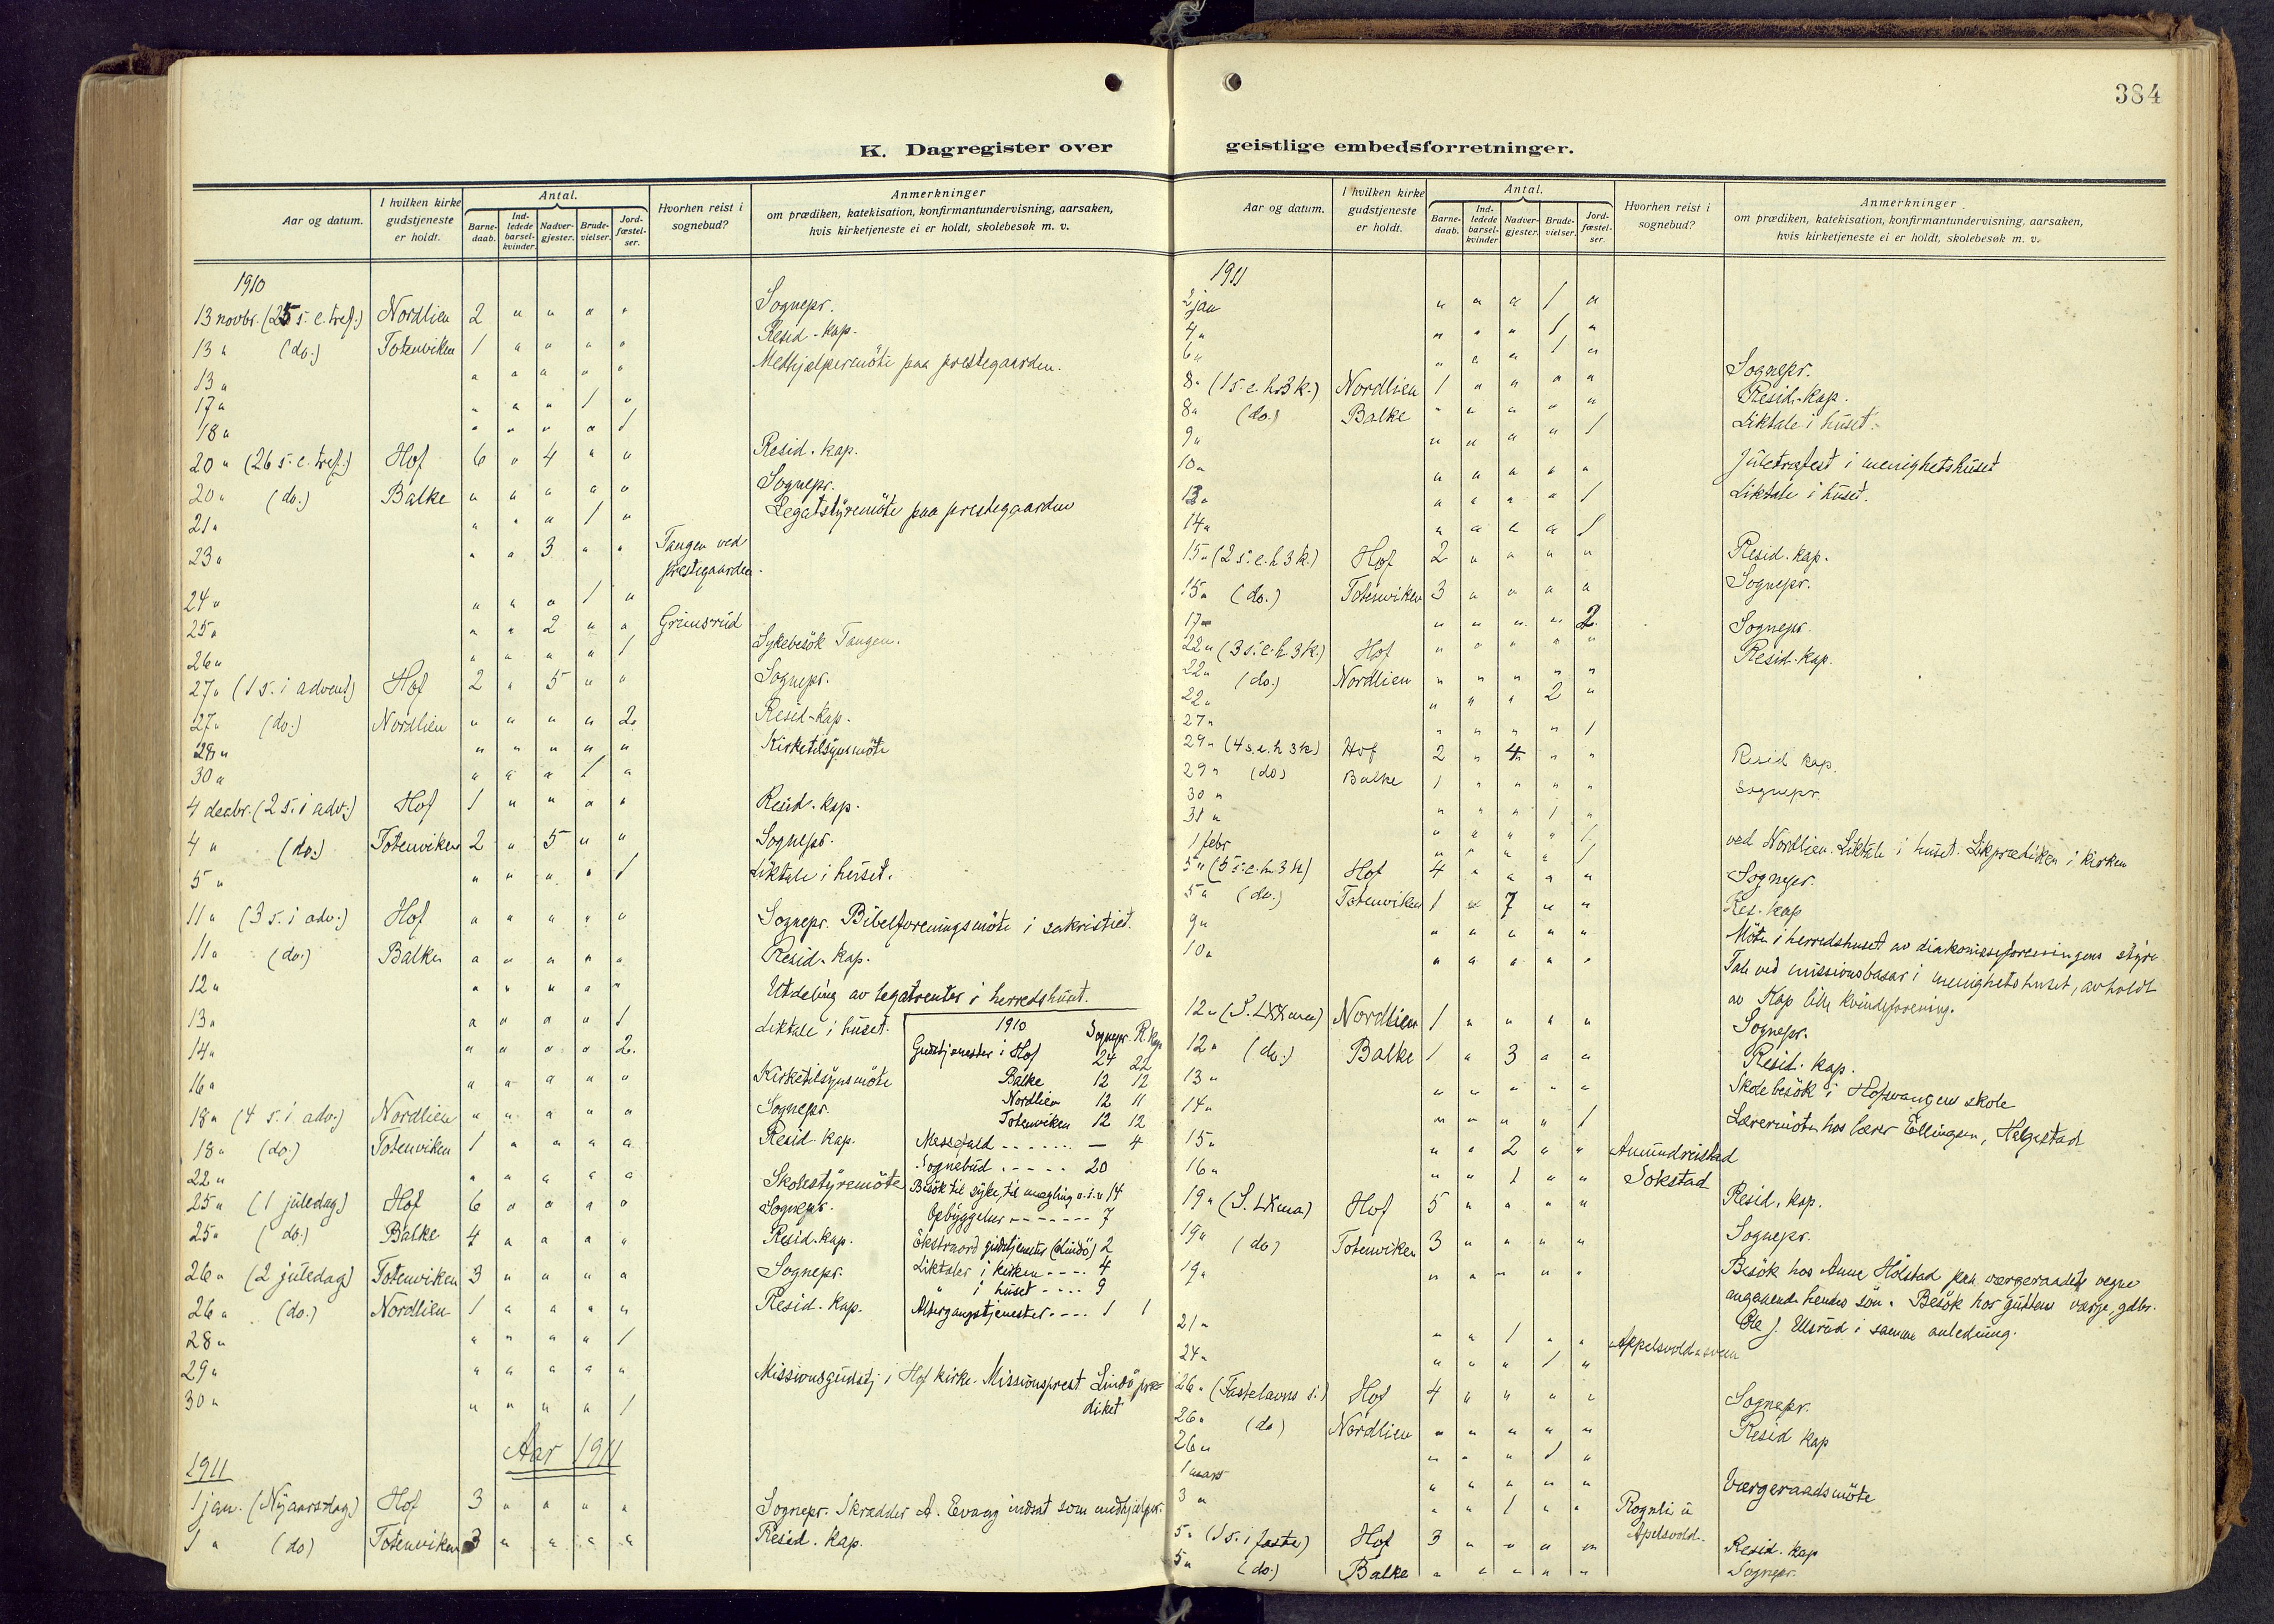 384
K. Dagregister over geistlige embedsforretninger.
Aar og datum. | I hvilken kirke gudstjeneste er holdt. | Antal. Barnedaab. | Indledede barselkvinder. | Nadvergjester. | Brudevielser. | Jordfæstelser. | Hvorhen reist i sognebud? | Anmerkninger om prædiken, katekisation, konfirmantundervisning, aarsaken, hvis kirketjeneste ei er holdt, skolebesøk m. v.
1910
13 novbr. (25 s. e. tref.) Nordlien 2 " " " " Sognepr.
13 " (do.) Totenviken 1 " " " " Resid. kap.
13 " " " " " " Medhjælpermöte paa prestegaarden.
17 " " " " 1 "
18 " " " " " 1
20 " (26 s. e. tref.) Hof 6 " 4 " " Resid. kap.
20 " (do.) Balke " " " " " Sognepr.
21 " " " " 1 " Legatstyremöte paa prestegaarden
23 " " " 3 " " Tangen ved prestegaarden.
24 " " " " 1 "
25 " " " 2 " " Grimsrud
26 " " " " " 1 Sykebesök Tangen.
27 " (1 s. i advent) Hof 2 " 5 " " Sognepr.
27 " (do.) Nordlien " " " " 2. Resid. kap.
28 " " " " " " Kirketilsynsmöte
30 " " " " 1 "
4 decbr. (2 s. i adv.) Hof 1 " " " " Resid. kap.
4 " (do.) Totenviken 2 " 5 " " Sognepr.
5 " " " " " 1 Liktale i huset.
11 " (3 s. i adv.) Hof " " " " " Sognepr. Bibelforeningsmöte i sakristiet.
11 " (do.) Balke " " " " " Resid. kap.
12 " " " " " " Utdeling av legatrenter i herredshuset.
13 " " " " " 1 Liktale i huset.
14 " " " " " 2.
16 " " " " " " Kirketilsynsmöte
18 " (4 s. i adv.) Nordlien " " " " " Sognepr.
18 " (do.) Totenviken 1 " " " " Resid. kap.
22 " " " " " " Skolestyremöte
25 " (1 juledag) Hof 6 " " " " Sognepr.
25 " (do.) Balke 4 " " " " Resid. kap.
26 " (2 juledag) Totenviken 3 " " " " Sognepr.
26 " (do.) Nordlien 1 " " " " Resid. kap.
28 " " " " " 1
29 " " " " " " Missionsgudstj i Hof kirke. Missionsprest Lindö prædiket
30 " " " " " 1
1910 Sognepr. R. kap
Gudstjenester i Hof 24 22
Balke 12 12
Nordlien 12 11
Totenviken 12 12
Messefald - - - - — 4
Sognebud - - - - 20
Besök til syke, til mægling o.s.v 14
Opbyggelser - - - - 7
Ekstraord gudstjenester (Lindö) 2
Liktaler i kirken - - - - 4
" i huset - - - - 9
Altergangstjenester - - - 1 1
Aar 1911
1911
1 jan. (Nyaarsdag) Hof 3 " " " " Sognepr. Skrædder A. Evang indsat som medhjælper.
1 " (do) Totenviken 3 " " " " Resid. kap.
1911
2 jan " " " 1 "
4 " " " " 1 "
6 " " " " 1 "
8 " (1 s. e. h 3 k.) Nordlien 1 " " " " Sognepr.
8 " (do.) Balke " " " " " Resid. kap.
9 " " " " " 1 Liktale i huset.
10 " " " " " " Juletræfest i menighetshuset
13 " " " " " 1 Liktale i huset.
14 " " " " " 1
15 " (2 s. e. h 3 k.) Hof 2 " " " " Resid. kap.
15 " (do.) Totenviken 3 " " " " Sognepr.
17 " " " " " 2.
22 " (3 s. e. h 3 k.) Hof " " " " " Sognepr.
22 " (do.) Nordlien " " " " " Resid. kap.
22 " " " " 2 "
27 " " " " " 1
29 " (4 s. e. h 3 k) Hof 2 " 4 " " Resid kap.
29 " (do) Balke 1 " " " " Sognepr.
30 "
31 " " " " 1 "
1 febr " " " " 1 ved Nordlien. Liktale i huset. Likprædiken i kirken
5 " (5 s. e. h. 3 k) Hof 4 " " " " Sognepr.
5 " (do.) Totenviken 1 " 7 " " Res. kap
9 " " " " " " Möte i herredshuset av diakonisseforeningens styre
10 " " " " " " Tale ved missionsbasar i menighetshuset, avholdt av Kap lille kvindeforening.
12 " Nordlien 1 " " " " Sognepr.
12 " (do.) Balke 1 " 3 " " Resid. kap.
13 " " " " " " Skolebesök i Hofsvangen skole
14 " " " " " 1 Lærermöte hos lærer Ellingsen, Helgestad
15 " " " 2 " " Amundreistad
16 " " " 1 " " Sokstad
19 " Hof 5 " " " " Resid. kap.
19 " (do) Totenviken 3 " " " " Sognepr.
19 " " " " " " Besök hos Anne Holstad paa værgeraadets vegne angaaende hendes sön. Besök hos guttens værge, gdbr. Ole J. Ulsrud i samme anledning.
21 " " " 1 " " Appelsvold
24 " " " " 1 "
26 " (Fastelavns s.) Hof 4 " " " " Sognepr.
26 " (do) Nordlien " " " " " Resid kap
26 " " " " 1 "
1 mars " " " " " Værgeraadsmöte
3 " " " 1 " " Rognli u Apelsvold.
5 " (1 s. i faste) Hof 3 " " " " Resid. kap
5 " (do.) Balke " " " " " Sognepr.